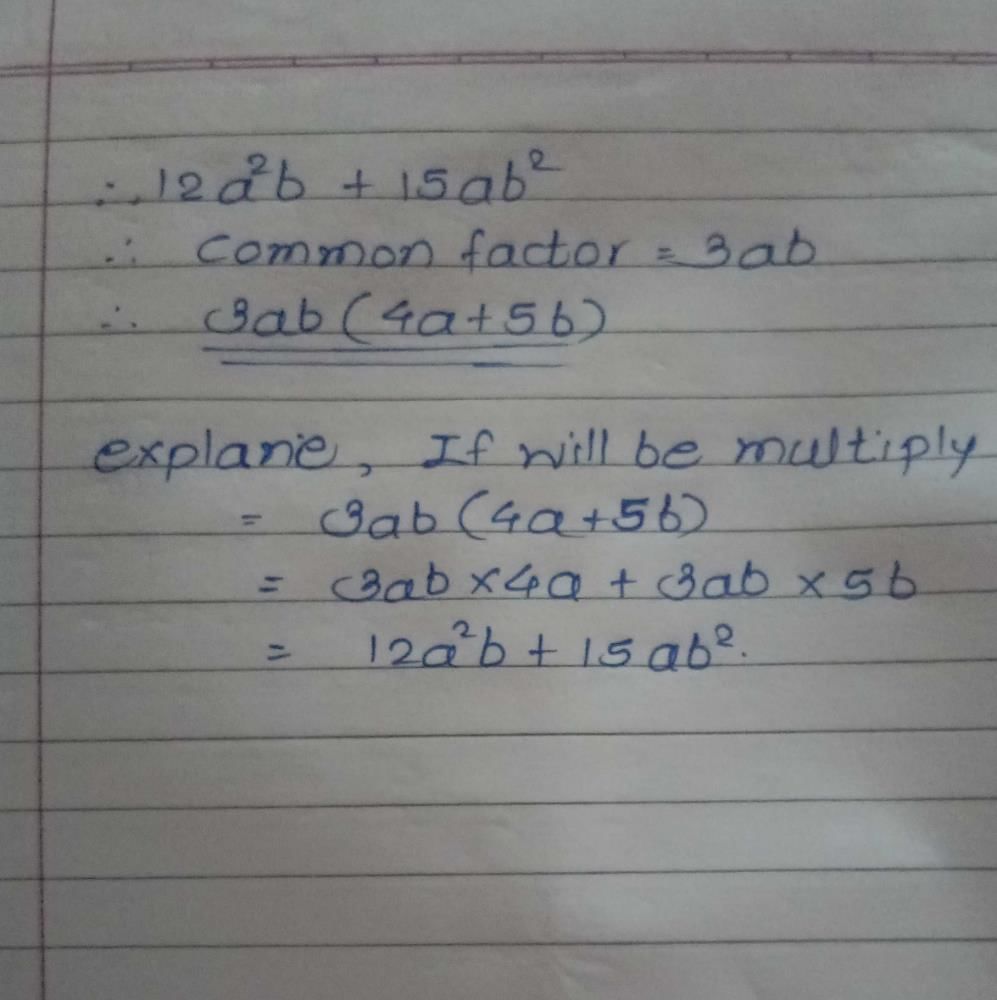 ∴ 12a²b + 15ab²
∴ common factor = 3ab
∴ 3ab (4a+5b)
explane, If will be multiply
= 3ab (4a+5b)
= 3ab × 4a + 3ab × 5b
= 12a²b + 15ab².